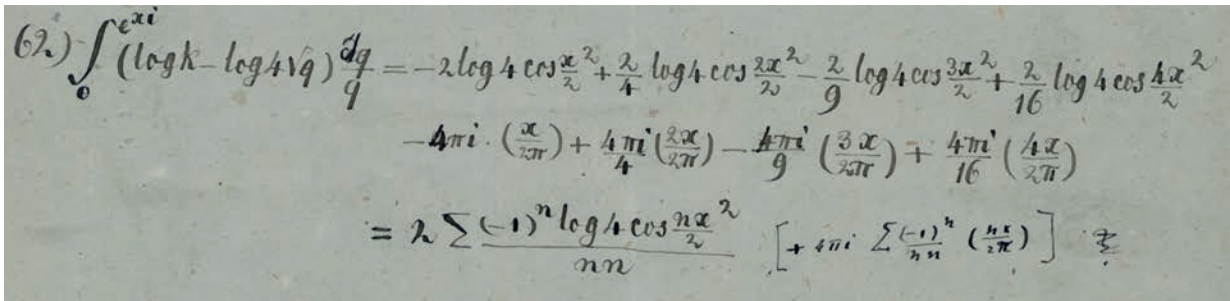 (62) ∫₀^{e^{xi}} (log k − log 4√q) dq/q = −2 log 4 cos x/2² + 2/4 log 4 cos 2x/2² − 2/9 log 4 cos 3x/2² + 2/16 log 4 cos 4x/2²
−4πi · (x/2π) + 4πi/4 (2x/2π) − 4πi/9 (3x/2π) + 4πi/16 (4x/2π)
= 2 Σ (−1)ⁿ log 4 cos nx/2² / nn [+ 4πi Σ (−1)ⁿ/nn (nx/2π)]